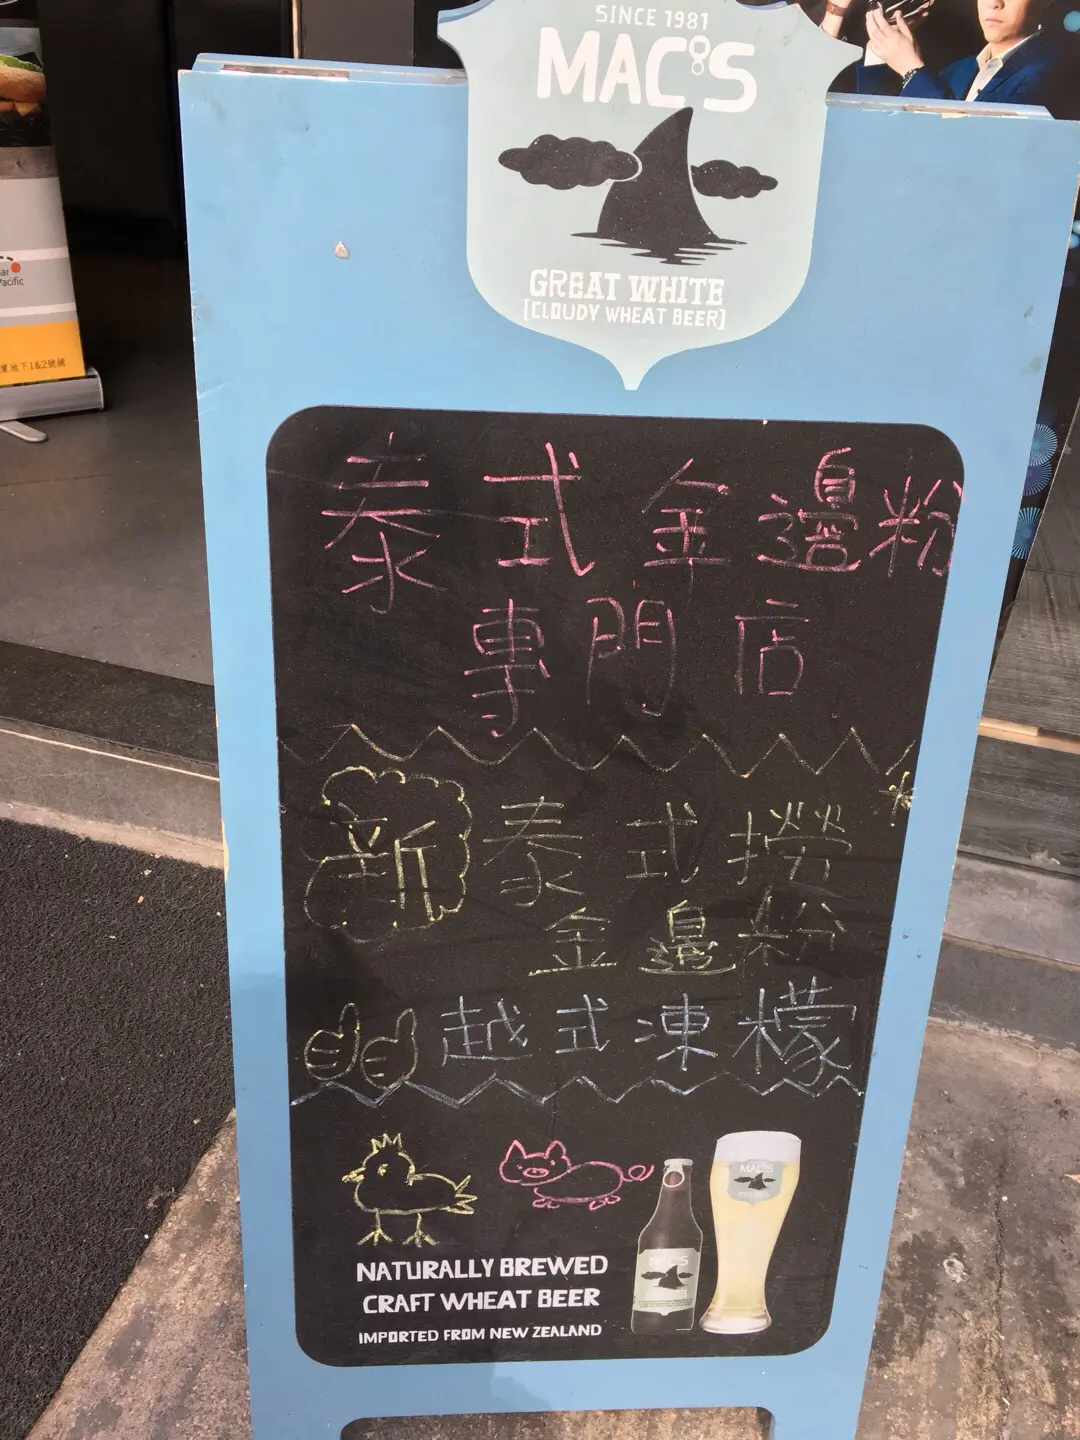 SINCE 1981
MAC'S
GREAT WHITE
[CLOUDY WHEAT BEER]
Pacific
地下1&2號舖
泰式金邊粉
專門店
新泰式撈
金邊粉
越式凍檬
MAC'S
MAC'S
NATURALLY BREWED
CRAFT WHEAT BEER
IMPORTED FROM NEW ZEALAND